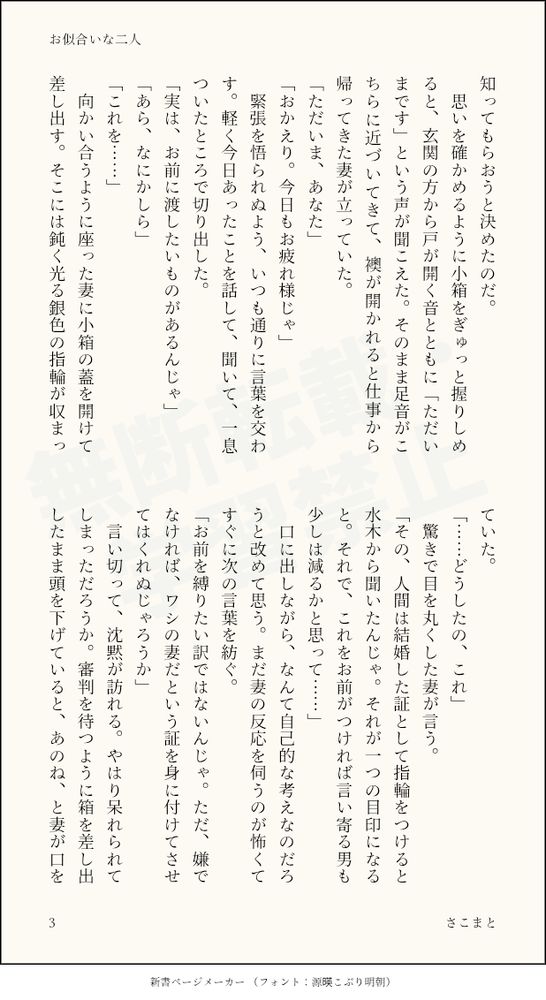 お似合いな二人
知ってもらおうと決めたのだ。
　思いを確かめるように小箱をぎゅっと握りしめ
ると、玄関の方から戸が開く音とともに「ただい
まです」という声が聞こえた。そのまま足音がこ
ちらに近づいてきて、襖が開かれると仕事から
帰ってきた妻が立っていた。
「ただいま、あなた」
「おかえり。今日もお疲れ様じゃ」
　緊張を悟られぬよう、いつも通りに言葉を交わ
す。軽く今日あったことを話して、聞いて、一息
ついたところで切り出した。
「実は、お前に渡したいものがあるんじゃ」
「あら、なにかしら」
「これを……」
　向かい合うように座った妻に小箱の蓋を開けて
差し出す。そこには鈍く光る銀色の指輪が収まっ
ていた。
「……どうしたの、これ」
　驚きで目を丸くした妻が言う。
「その、人間は結婚した証として指輪をつけると
水木から聞いたんじゃ。それが一つの目印になる
と。それで、これをお前がつければ言い寄る男も
少しは減るかと思って……」
　口に出しながら、なんて自己的な考えなのだろ
うと改めて思う。まだ妻の反応を伺うのが怖くて
すぐに次の言葉を紡ぐ。
「お前を縛りたい訳ではないんじゃ。ただ、嫌で
なければ、ワシの妻だという証を身に付けてさせ
てはくれぬじゃろうか」
　言い切って、沈黙が訪れる。やはり呆れられて
しまっただろうか。審判を待つように箱を差し出
したまま頭を下げていると、あのね、と妻が口を
3
さこまと
無断転載・
学習禁止
新書ページメーカー（フォント：源暎こぶり明朝）